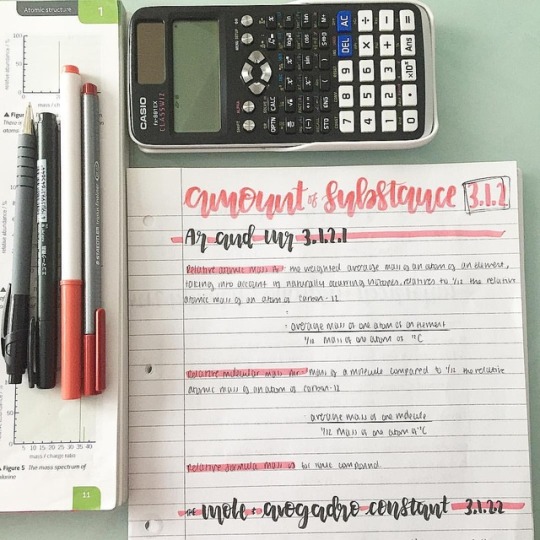 Atomic structure
1
100
50
0
relative abundance / %
mass / charge
▲ Figu
These is
atoms
relative abundance / %
50
0
5 10 15 20 25 30 35 40
mass / charge ratio
Figure 5 The mass spectrum of
11
CASIO
fx-991EX
CLASSWIZ
OPTN CALC
STO ENG
DEL AC
7 8 9
4 5 6
1 2 3
0 . ×10ˣ Ans
amount of substance 3.1.2
Ar and Mr 3.1.2.1
Relative atomic mass Ar the weighted average mass of an atom of an element,
taking into account its naturally occurring isotopes, relative to 1/12 the relative
atomic mass of an atom of carbon-12
average mass of one atom of an element
1/12 mass of one atom of ¹²C
Relative molecular mass Mr mass of a molecule compared to 1/12 the relative
atomic mass of an atom of carbon-12
average mass of one molecule
1/12 mass of one atom of ¹²C
Relative formula mass is for ionic compound
the mole & avogadro constant 3.1.2.2